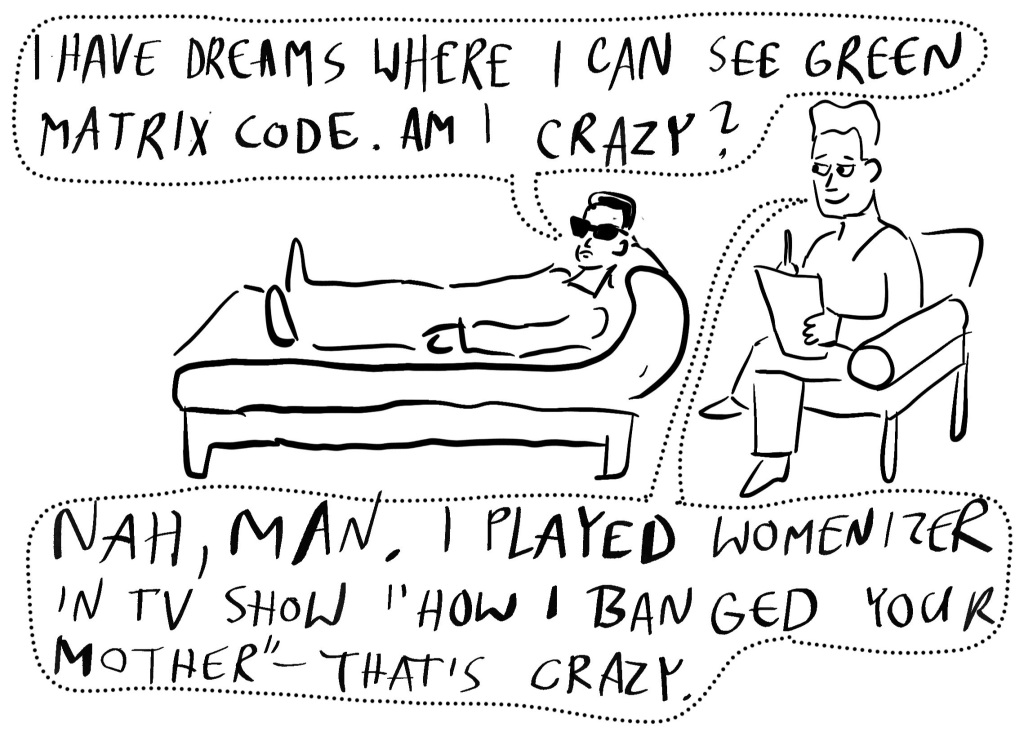 I HAVE DREAMS WHERE I CAN SEE GREEN
MATRIX CODE. AM I CRAZY?
NAH, MAN. I PLAYED WOMENIZER
IN TV SHOW "HOW I BANGED YOUR
MOTHER" – THAT'S CRAZY.